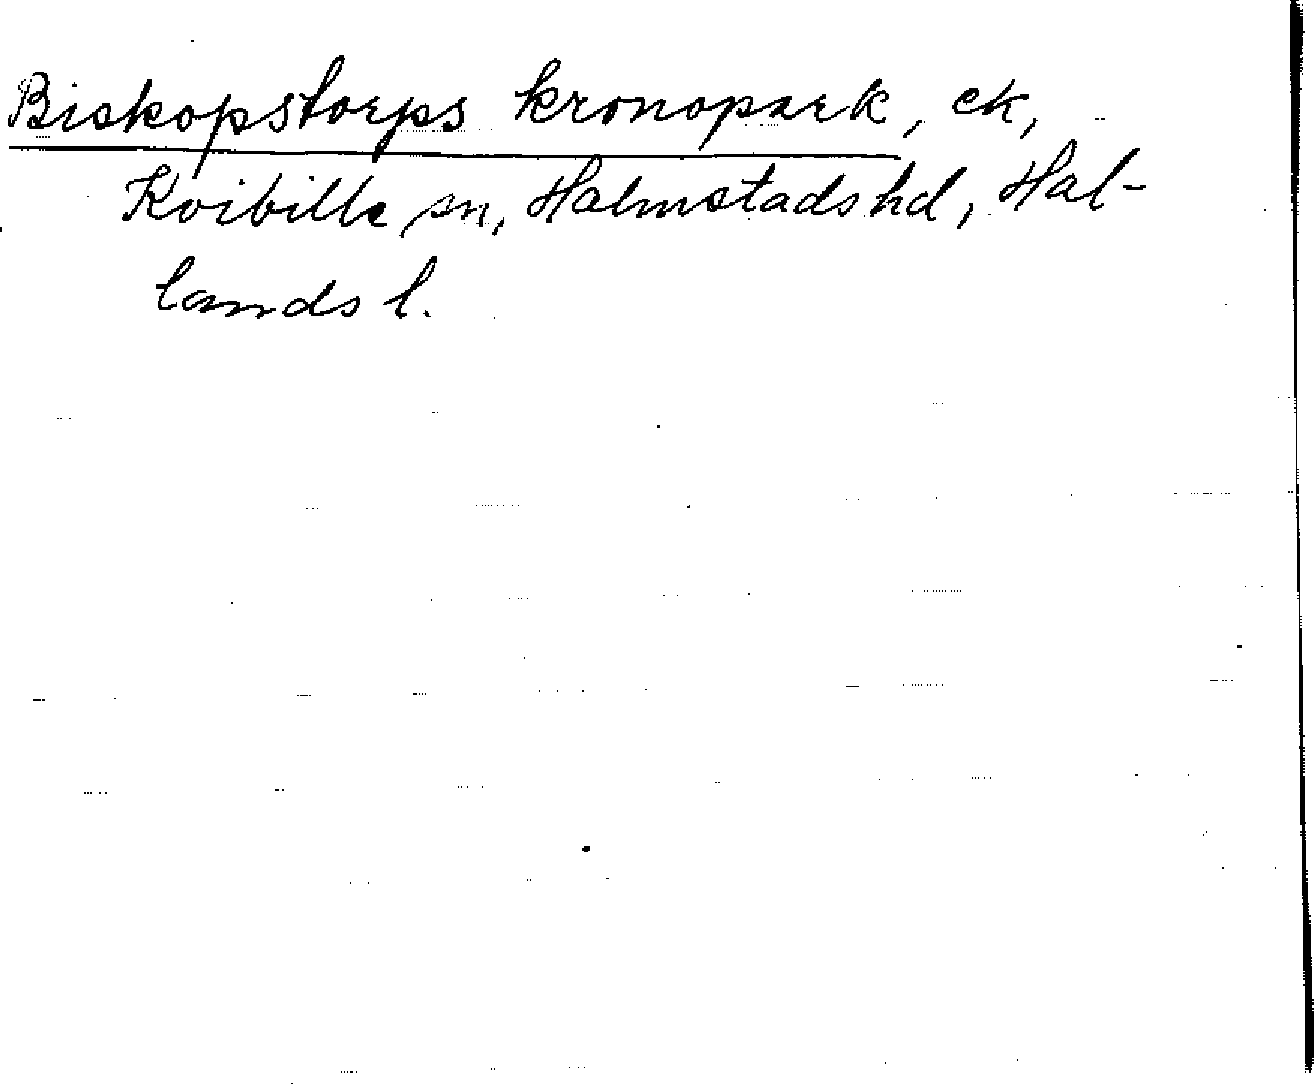 Biskopstorps kronopark, ek,
Kvibille sn, Halmstads hd, Hal-
lands l.